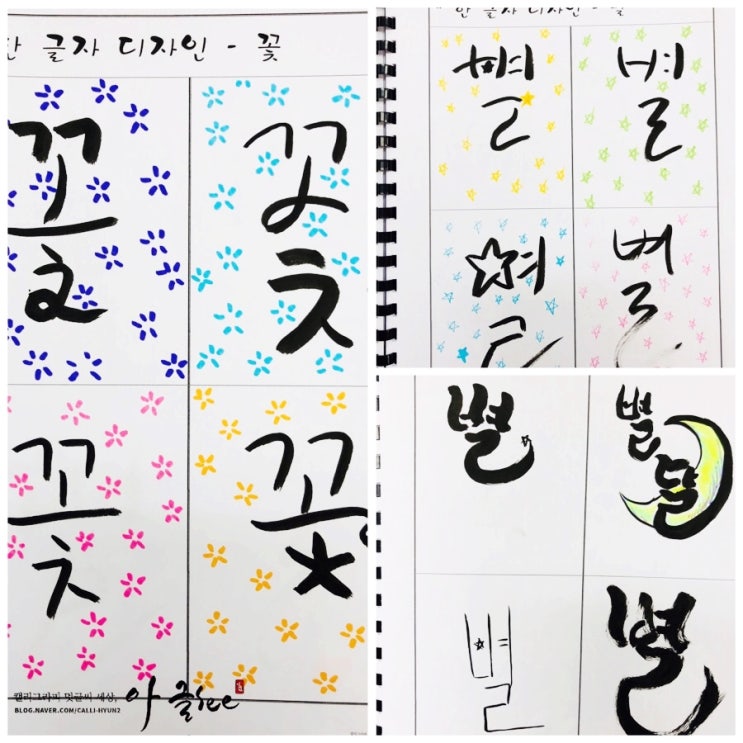 한 글자 디자인 - 꽃
꽃
꽃
꽃
꽃
캘리그라피 멋글씨 세상,
BLOG.NAVER.COM/CALLI-HYUN2
한 글자 디자인 - 별
별
별
별
별
별
별
달
별
별